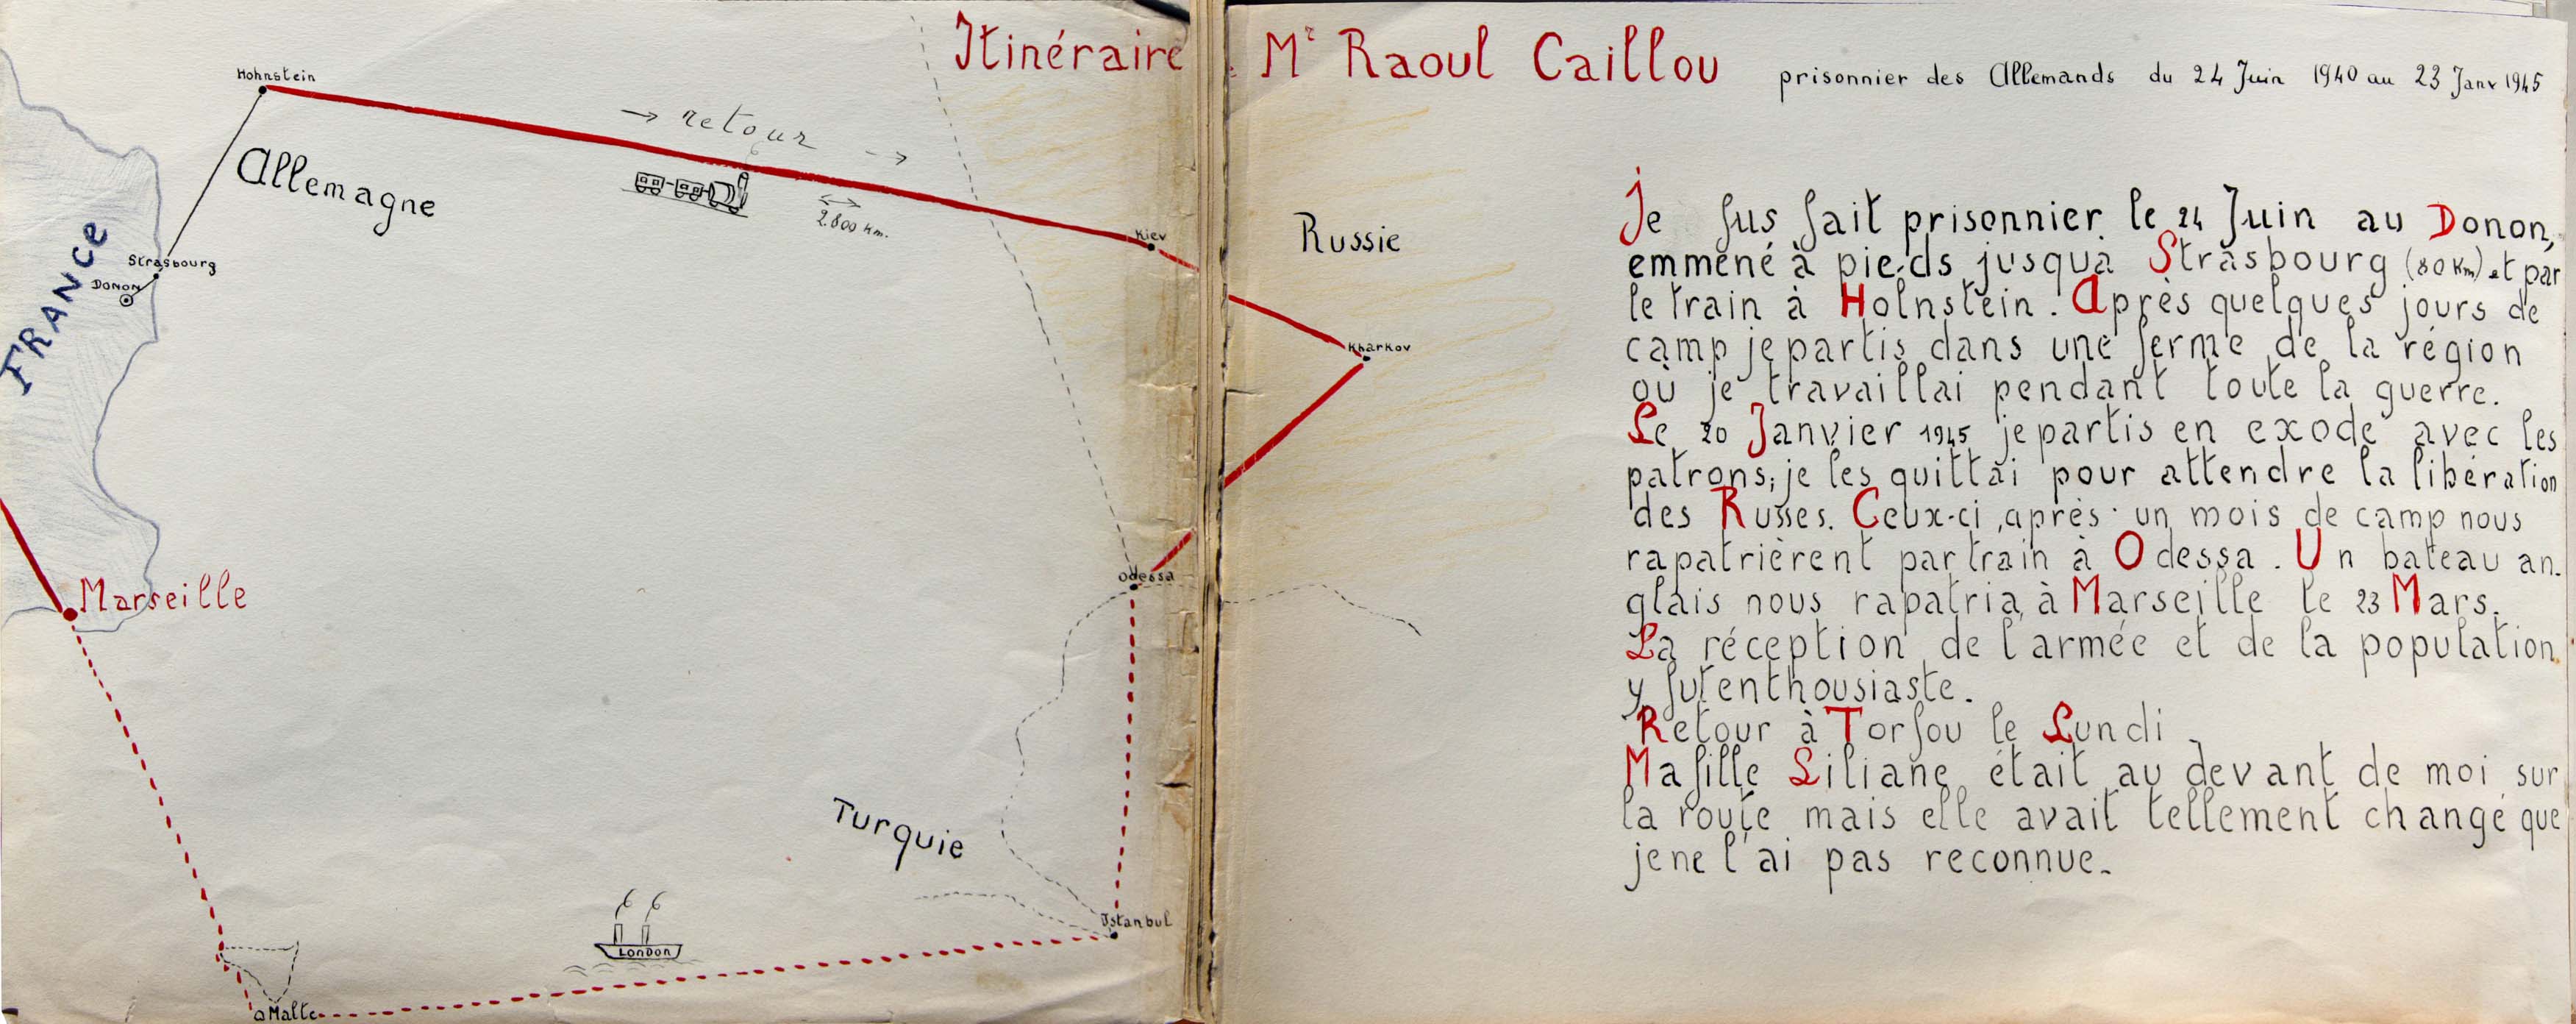 Itinéraire Mr Raoul Caillou prisonnier des Allemands du 24 Juin 1940 au 23 Janv 1945
Hohnstein
→ retour →
Allemagne
2.800 km.
Kiev
Strasbourg
DONON
FRANCE
Russie
Kharkov
Odessa
Marseille
Turquie
Istanbul
LONDON
Malte
Je fus fait prisonnier le 24 Juin au Donon,
emmené à pieds jusqu'à Strasbourg (80 Km) et par
le train à Holnstein. Après quelques jours de
camp je partis dans une ferme de la région
où je travaillai pendant toute la guerre.
Le 20 Janvier 1945 je partis en exode avec les
patrons; je les quittai pour attendre la libération
des Russes. Ceux-ci, après un mois de camp nous
rapatrièrent par train à Odessa. Un bateau an-
glais nous rapatria à Marseille le 23 Mars.
La réception de l'armée et de la population
y fut enthousiaste.
Retour à Torfou le Lundi
Ma fille Liliane était au devant de moi sur
la route mais elle avait tellement changé que
je ne l'ai pas reconnue.